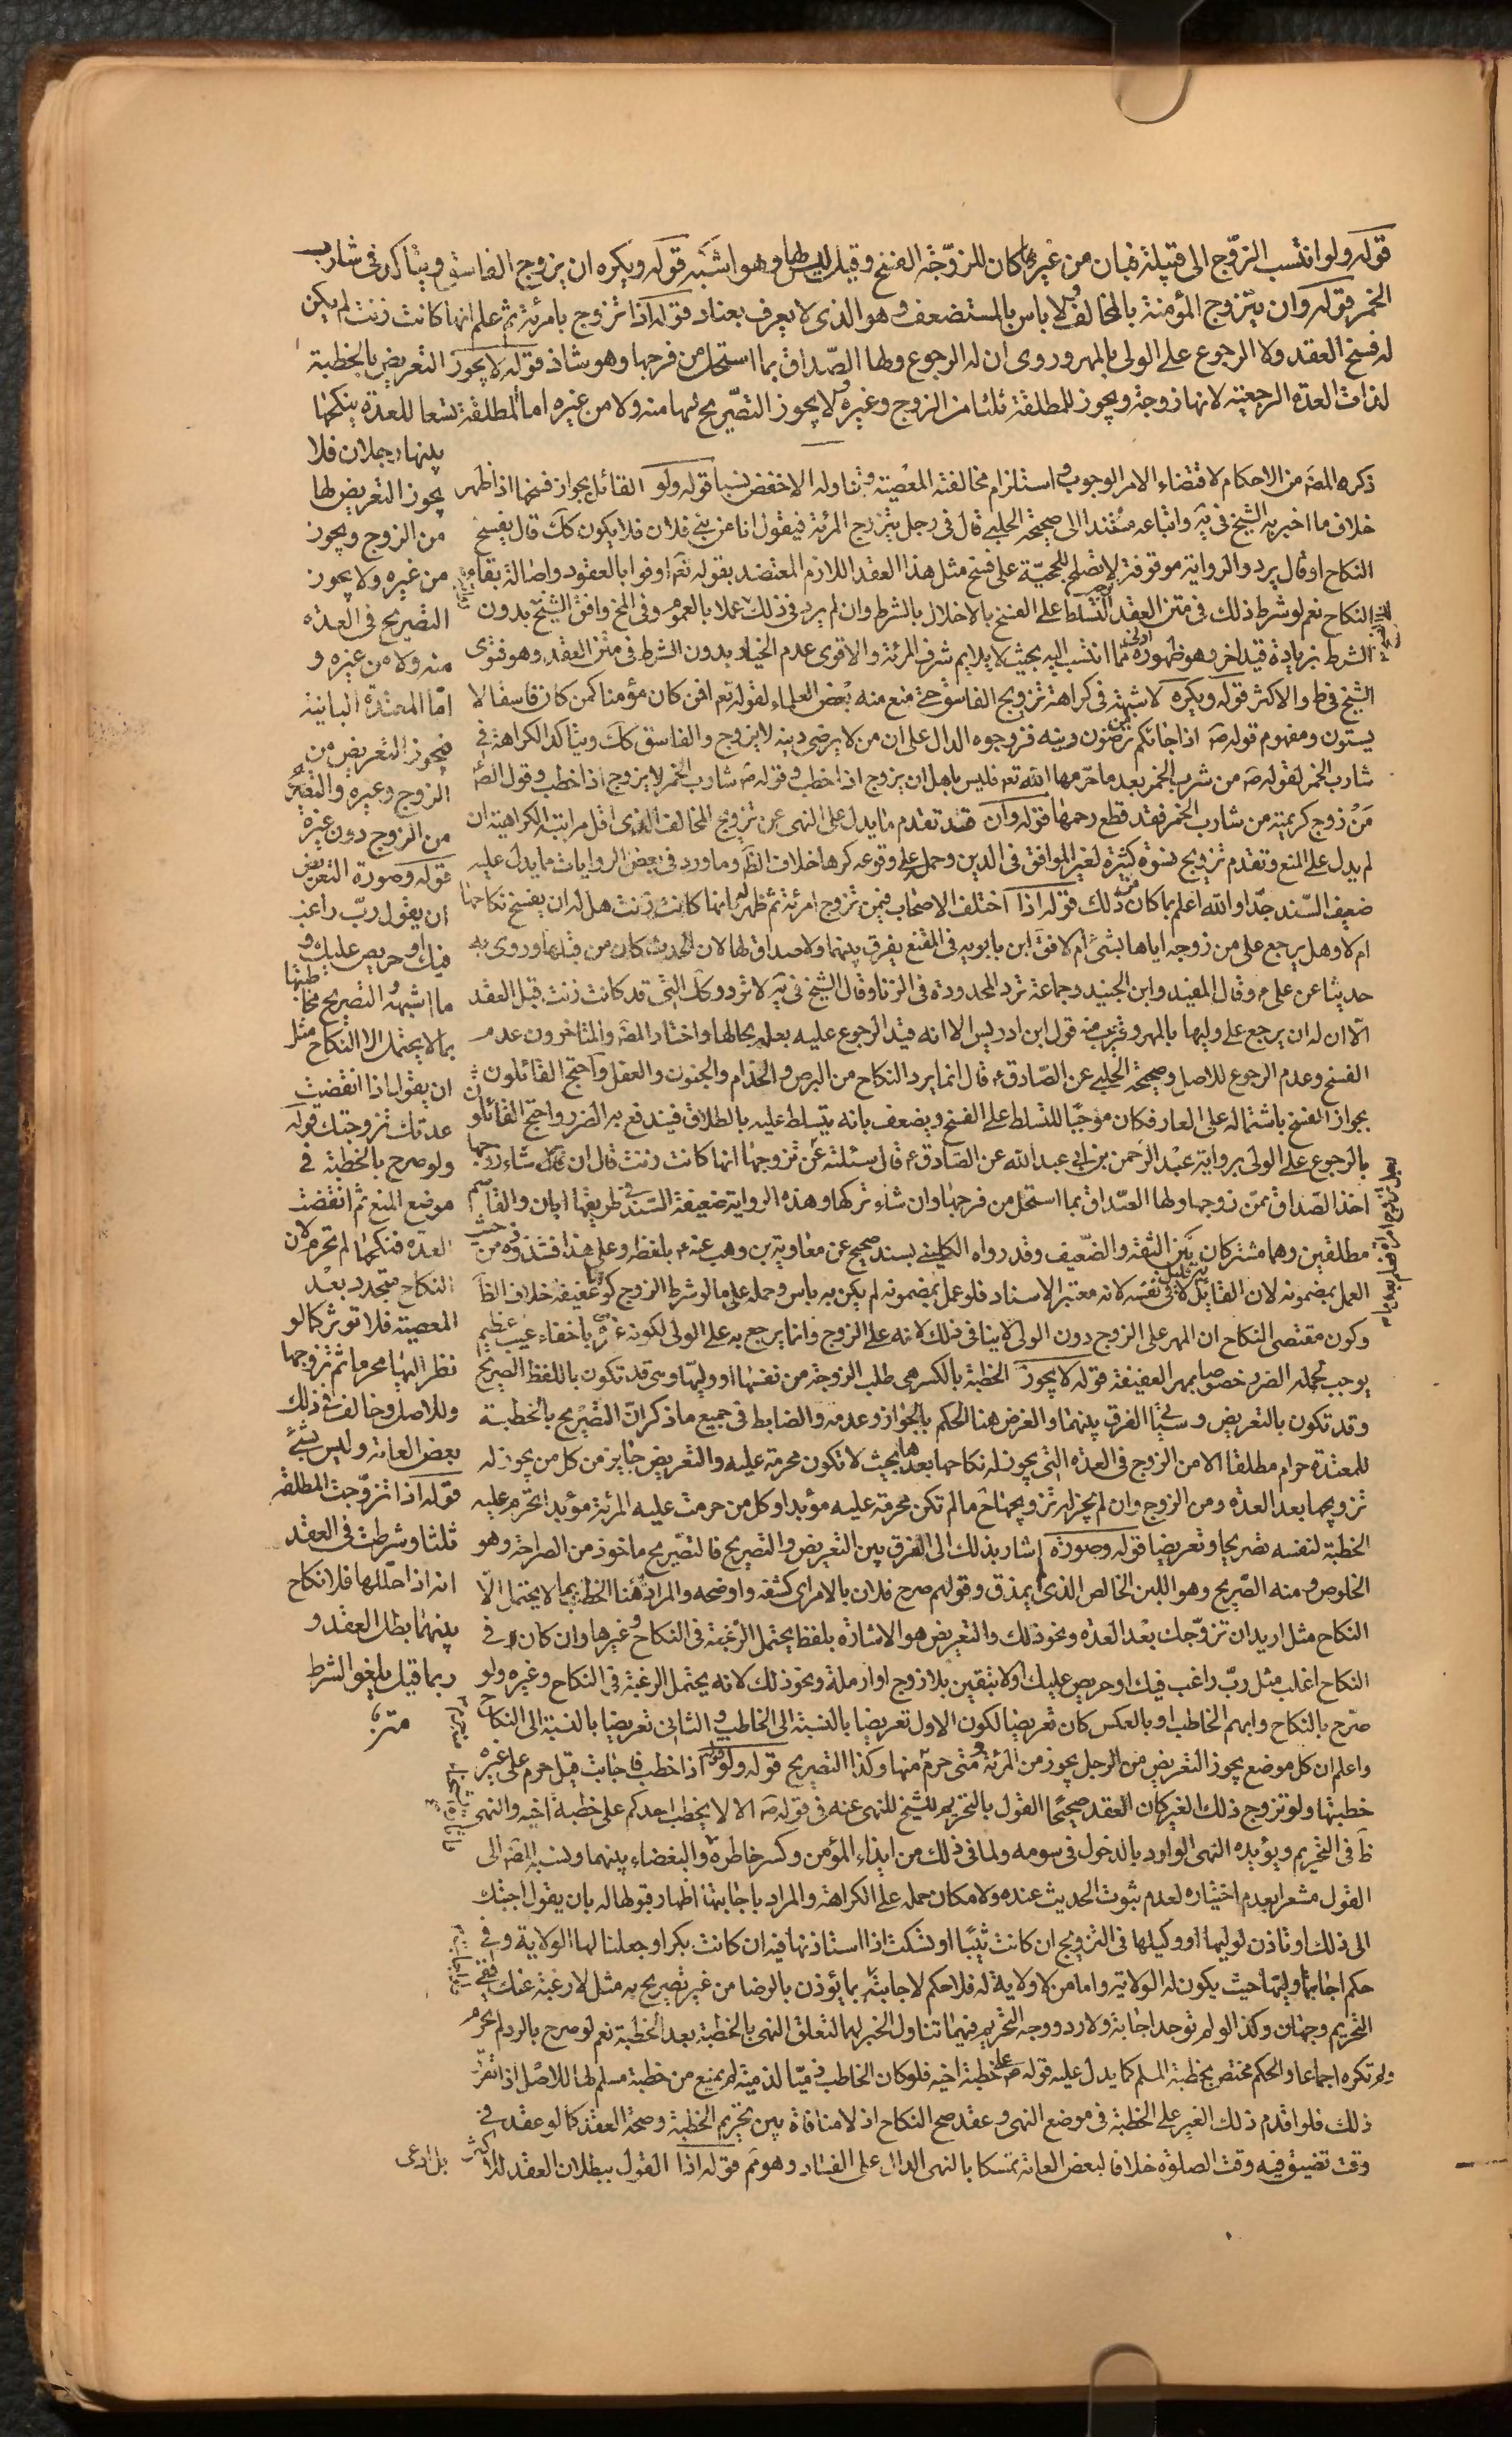 قوله ولو انتسب الزوج الى قبيلة فبان من غيرها كان للزوجة الفسخ وقيل ليس لها وهو اشبه قوله ويكره ان يزوج الفاسق ويتاكد فى شارب
الخمر قوله وان يتزوج المؤمنة بالمخالف ولا باس بالمستضعف وهو الذى لا يعرف بعناد قوله اذا تزوج بامرئة ثم علم انها كانت زنت لم يكن
له فسخ العقد ولا الرجوع على الولى بالمهر وروى ان له الرجوع ولها الصداق بما استحل من فرجها وهو شاذ قوله لا يجوز التعريض بالخطبة
لذات العدة الرجعية لانها زوجة ويجوز للمطلقة ثلثا من الزوج وغيره ولا يجوز التصريح لها منه ولا من غيره اما المطلقة تسعا للعدة ينكحها
بينها رجلان فلا
يجوز التعريض لها
من الزوج ويجوز
من غيره ولا يجوز
التصريح فى العدة
منه ولا من غيره و
امّا المعتدة الباينة
فيجوز التعريض من
الزوج وغيره والتصريح
من الزوج دون غيره
قوله وصورة التعريض
ان يقول ربّ راغب
فيك او حريص عليك و
ما اشبهه والتصريح مخاطبتها
بما لا يحتمل الا النكاح مثل
ان يقول اذا انقضت
عدتك تزوجتك قوله
ولو صرح بالخطبة فى
موضع المنع ثم انقضت
العدة فنكحها لم تحرم لان
النكاح متجدد بعد
المعصية فلا تؤثر كما لو
نظر اليها محرما ثم تزوجها
وللاصل وخالف فى ذلك
بعض العامة وليس بشئ
قوله اذا تزوجت المطلقة
ثلثا وشرطت فى العقد
انه اذا حللها فلا نكاح
بينهما بطل العقد و
ربما قيل يلغو الشرط
ذكره المصَ من الاحكام لاقتضاء الامر الوجوب واستلزام مخالفته المعصية وتناوله الاخفض نسبا قوله ولو القائل بجواز فسخها اذا ظهر
خلاف ما اخبر به الشيخ فى يَه واتباعه مستندا الى صحيحة الحلبى قال فى رجل يتزوج المرئة فيقول انا من بنى فلان فلا يكون كك قال يفسخ
النكاح او قال يرد والرواية موقوفة لا تصلح للحجيّة على فسخ مثل هذا العقد اللازم المعتضد بقوله تعَ اوفوا بالعقود واصالة بقاء
النكاح نعم لو شرط ذلك فى متن العقد تسلط على الفسخ بالاخلال بالشرط وان لم يرد فى ذلك عملا بالعموم وفى المخ وافق الشيخ بدون
الشرط بزيادة قيد اخر وهو ظهوره ادنى ممّا انتسب اليه بحيث لا يلايم شرف المرئة والاقوى عدم الخيار بدون الشرط فى متن العقد وهو فتوى
الشيخ فى ط والاكثر قوله ويكره لا شبهة فى كراهة تزويج الفاسق حتى منع منه بعض العلماء لقوله تعَ افمن كان مؤمنا كمن كان فاسقا لا
يستوون ومفهوم قوله صَ اذا جائكم من ترضون دينه فزوجوه الدال على ان من لا يرضى دينه لا يزوج والفاسق كك ويتاكد الكراهة فى
شارب الخمر لقوله صَ من شرب الخمر بعد ما حرمها الله تعَ فليس باهل ان يزوج اذا خطب وقوله صَ شارب الخمر لا يزوج اذا خطب وقول الصَ
مَنْ زوج كريمته من شارب الخمر فقد قطع رحمها قوله وان قد تقدم ما يدل على النهى عن تزوج المخالف الذى اقل مراتبه الكراهية ان
لم يدل على المنع وتقدم تزويج نسوة كثيرة لغير الموافق فى الدين وحمل على وقوعه كرها خلاف الظَ وما ورد فى بعض الروايات ما يدل عليه
ضعيف السند جدّا والله اعلم بما كان من ذلك قوله اذا اختلف الاصحاب فيمن تزوج امرئة ثم ظهر له انها كانت زنت هل له ان يفسخ نكاحها
ام لا وهل يرجع على من زوجه اياها بشئ ام لا فق ابن بابويه فى المقنع يفرق بينهما ولا صداق لها لان الحدث كان من قبلها وروى به
حديثا عن على م وقال المفيد وابن الجنيد وجماعة ترد المحدودة فى الزنا وقال الشيخ فى يَه لا ترد وكك التى قد كانت زنت قبل العقد
الّا ان له ان يرجع على وليها بالمهر وقريب منه قول ابن ادريس الا انه قيد الرجوع عليه بعلمه بحالها واختار المصَ والمتاخرون عدم
الفسخ وعدم الرجوع للاصل وصحيحة الحلبى عن الصادق م قال انما يرد النكاح من البرص والجذام والجنون والعفل واحتج القائلون
بجواز الفسخ باشتماله على العار فكان موجبا للتسلط على الفسخ ويضعف بانه يتسلط عليه بالطلاق فيندفع به الضرر واحتج القائلون
بالرجوع على الولى برواية عبد الرحمن بن ابى عبد الله عن الصادق م قال سئلته عن تزوجها انها كانت زنت قال ان شاء زوجها
اخذ الصداق ممّن زوجها ولها الصداق بما استحل من فرجها وان شاء تركها وهذه الرواية ضعيفة السند فى طريقها ابان والقاسم
مطلقين وهما مشتركان بَيْن الثقة والضعيف وقد رواه الكلينى بسند صحيح عن معاوية بن وهب عنه م بلفظه وعلى هذا فشذوذه من حيث
العمل بمضمونه لان القايل به قليل لا فى نفسه لانه معتبر الاسناد فلو عمل بمضمونه لم يكن به باس وحمله على ما لو شرط الزوج كونها عفيفة خلاف الظَ
وكون مقتضى النكاح ان المهر على الزوج دون الولى لا ينافى ذلك لانه على الزوج وانما يرجع به على الولى لكونه غره باخفاء عيب عظيم
يوجب تحمله الضرر خصوصا بمهر العفيفة قوله لا يجوز الخطبة بالكسر هى طلب الزوجة من نفسها او وليّها وهى قد تكون باللفظ الصريح
وقد تكون بالتعريض وسياتى الفرق بينهما والغرض هنا الحكم بالجواز وعدمه والضابط فى جميع ما ذكر انّ التصريح بالخطبة
للمعتدة حرام مطلقا الا من الزوج فى العدة التى يجوز له نكاحها بعدها بحيث لا تكون محرمة عليه والتعريض جايز من كل من يجوز له
تزويجها بعد العدة ومن الزوج وان لم يجز له تزويجها حَ ما لم تكن محرمة عليه مؤبدا وكل من حرمت عليه المرئة مؤبدا تحرم عليه
الخطبة لنفسه تصريحا وتعريضا قوله وصورة اشار بذلك الى الفرق بين التعريض والتصريح فالتصريح ماخوذ من الصراحة وهو
الخلوص ومنه الصّريح وهو اللبن الخالص الذى لم يمذق وقولهم صرح فلان بالامر اى كشفه واوضحه والمراد هُنا الخطبة بما لا يحتمل الّا
النكاح مثل اريد ان تزوّجك بعد العدة ونحو ذلك والتعريض هو الاشارة بلفظ يحتمل الرغبة فى النكاح وغيرها وان كان فى
النكاح اغلب مثل ربّ راغب فيك او حريص عليك او لا تبقين بلا زوج او ارملة ونحو ذلك لانه يحتمل الرغبة فى النكاح وغيره ولو
صرّح بالنكاح وابهم الخاطب او بالعكس كان تعريضا لكون الاول تعريضا بالنسبة الى الخاطب والثانى تعريضا بالنسبة الى النكاح
واعلم ان كل موضع يجوز التعريض من الرجل يجوز من المرئة ومتى حرم حرم منها وكذا التصريح قوله ولو اذا خطب فاجابت قيل حرم على غيره
خطبتها ولو تزوج ذلك الغير كان العقد صحيحًا القول بالتحريم للشيخ للنهى عنه فى قوله صَ الا لا يخطب احدكم على خطبة اخيه والنهى
ظَ فى التحريم ويؤيده النهى الوارد بالدخول فى سومه ولما فى ذلك من ايذاء المؤمن وكسر خاطره والبغضاء بينهما ونسبه المصَ الى
القول مشعرا بعدم اختياره لعدم ثبوت الحديث عنده ولا مكان حمله على الكراهة والمراد باجابتها اظهار قبولها له بان يقول اجبتك
الى ذلك او تاذن لوليها او وكيلها فى التزويج ان كانت ثيّبًا او تسكت اذا استاذنها فيه ان كانت بكرا وجعلنا لها الولاية وفى
حكم اجابتها اجابة وليّها حيث يكون له الولاية واما من لا ولاية له فلا حكم لاجابته بما يؤذن بالرضا من غير تصريح به مثل لا رغبة عنك ففى
التحريم وجهان وكذا لو لم توجد اجابة ولا رد ووجه التحريم فيهما تناول الخبر لهما لتعلق النهى بالخطبة بعد الخطبة نعم لو صرح بالرد لم تحرم
ولم تكره اجماعا والحكم مختص بخطبة المسلم كما يدل عليه قوله صَ على خطبة اخيه فلو كان الخاطب ذميّا لذمية لم يمنع من خطبة مسلم لها للاصل اذا تقرر
ذلك فلو اقدم ذلك الغير على الخطبة فى موضع النهى وعقد صح النكاح اذ لا منافاة بين تحريم الخطبة وصحة العقد كما لو عقد فى
وقت تضيق فيه وقت الصلوة خلافا لبعض العامة تمسكا بالنهى الدال على الفساد وهو مَم قوله اذا القول ببطلان العقد للاكثر
بل ادعى